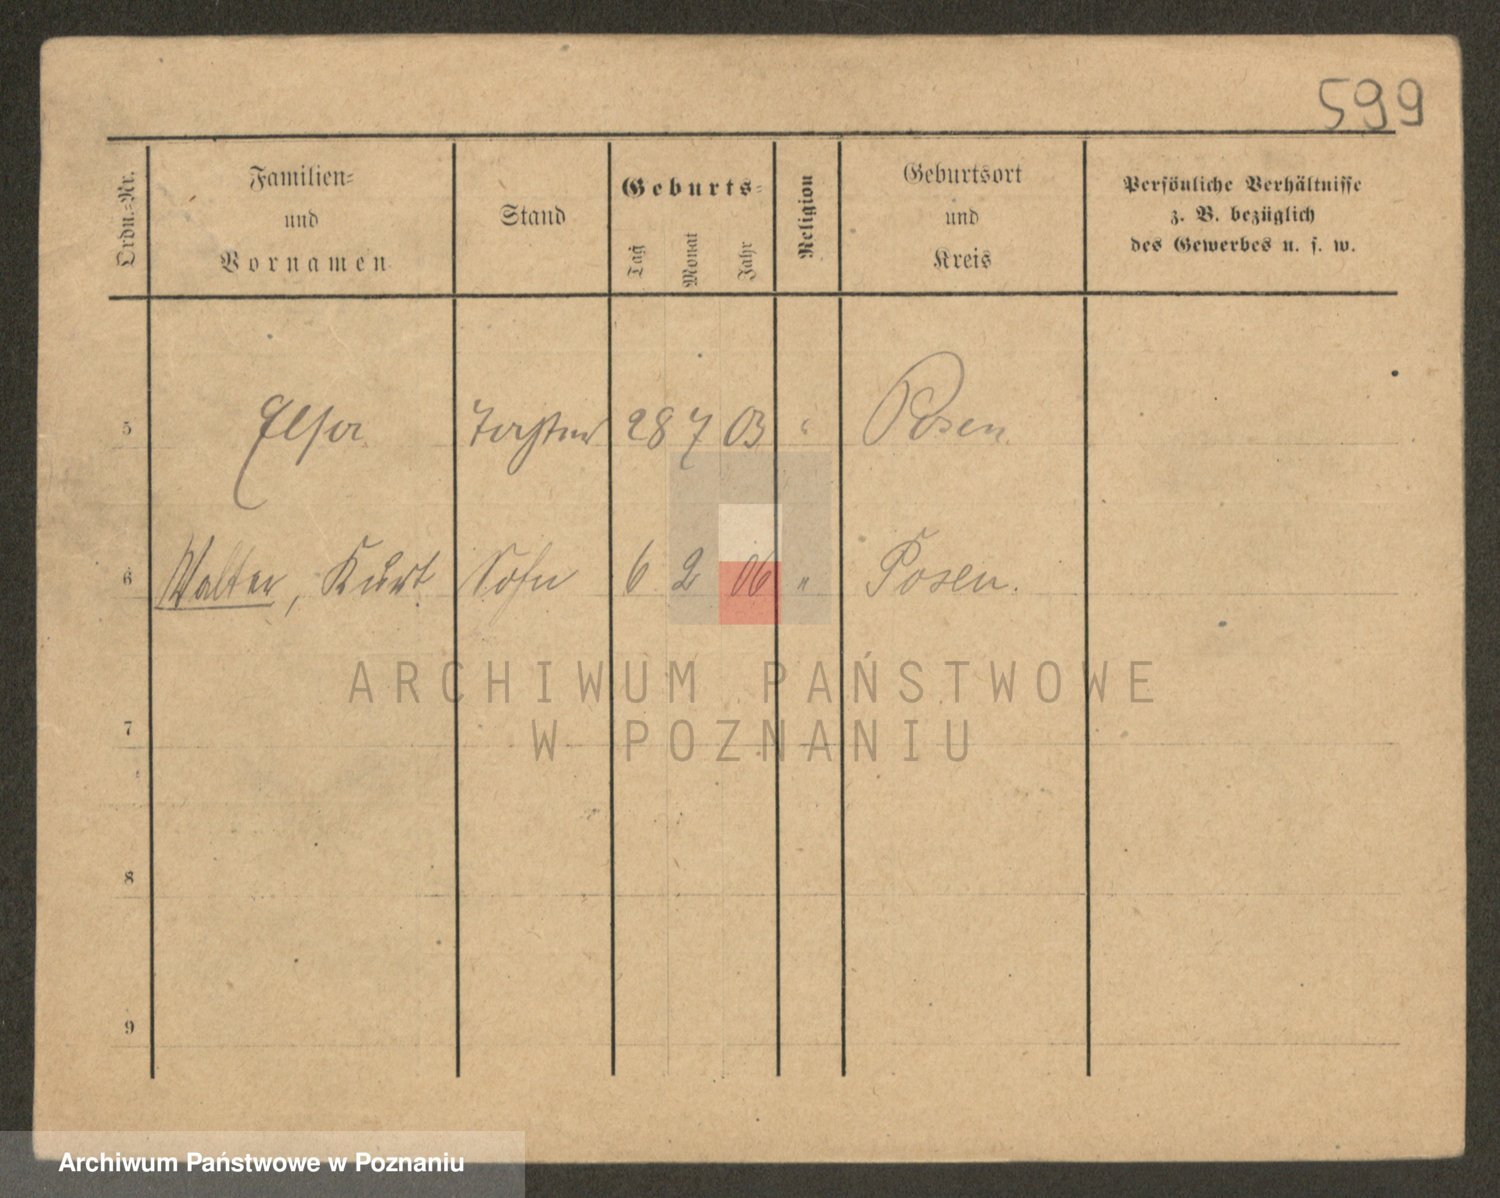 599
Ordn.-Nr.
Familien-
und
Vornamen
Stand
Geburts-
Tag
Monat
Jahr
Religion
Geburtsort
und
Kreis
Persönliche Verhältnisse
z. B. bezüglich
des Gewerbes u. s. w.
5 Elsa Tochter 28 7 03 " Posen
6 Walter, Kurt Sohn 6 2 06 " Posen.
7
8
9
ARCHIWUM PAŃSTWOWE
W POZNANIU
Archiwum Państwowe w Poznaniu